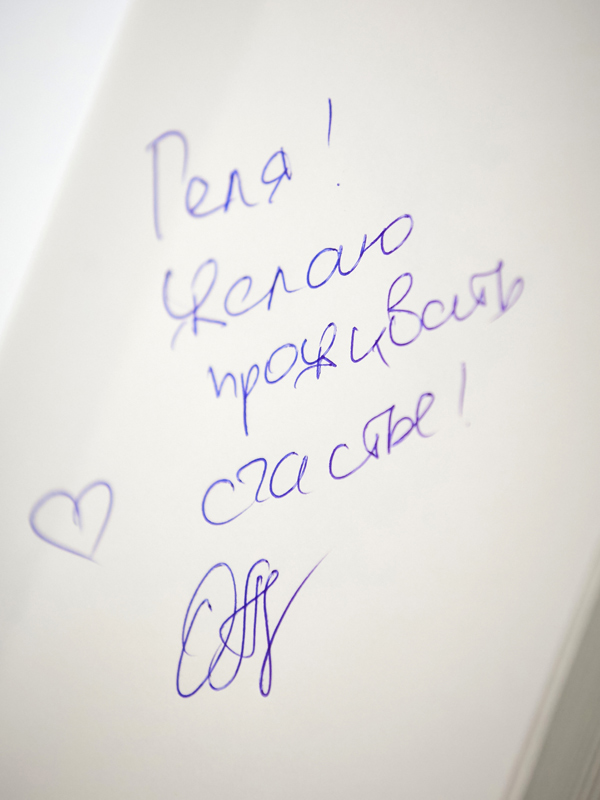 Геля!
Желаю
проживать
счастье!